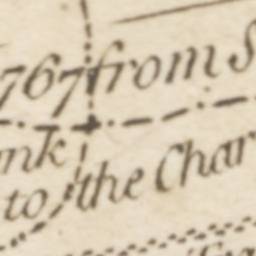 767 from S
nk
to the Char